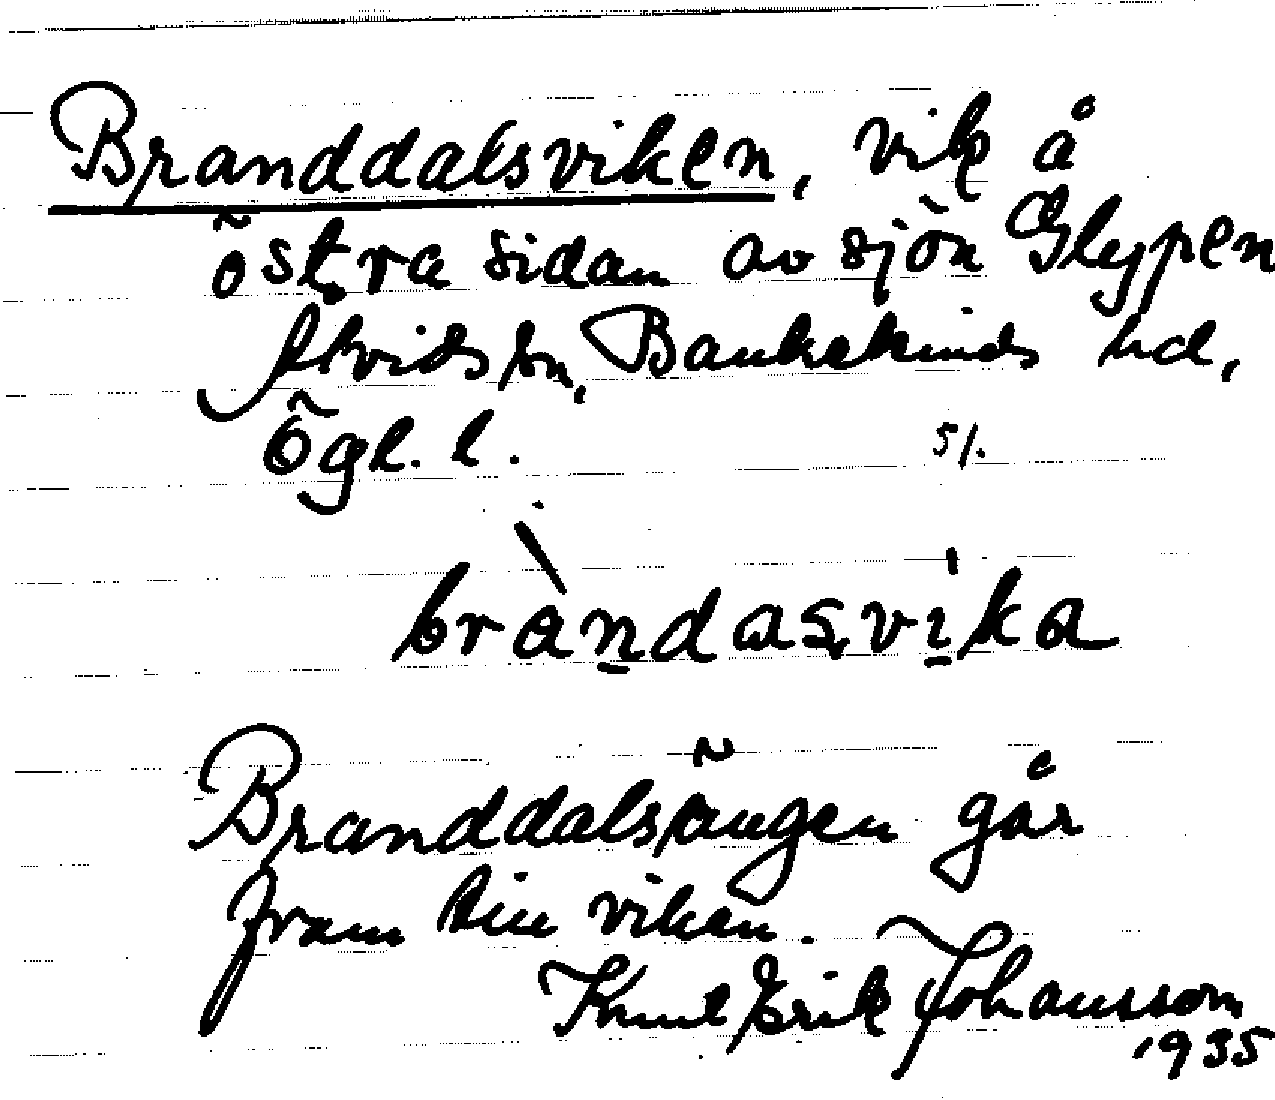 Branddalsviken, vik å
östra sidan av sjön Glypen
Skvids sn, Bankekinds hd,
Ögl. l. 5/.
bràndasvika
Branddalsängen går
fram till viken.
Knut Erik Johansson
1935